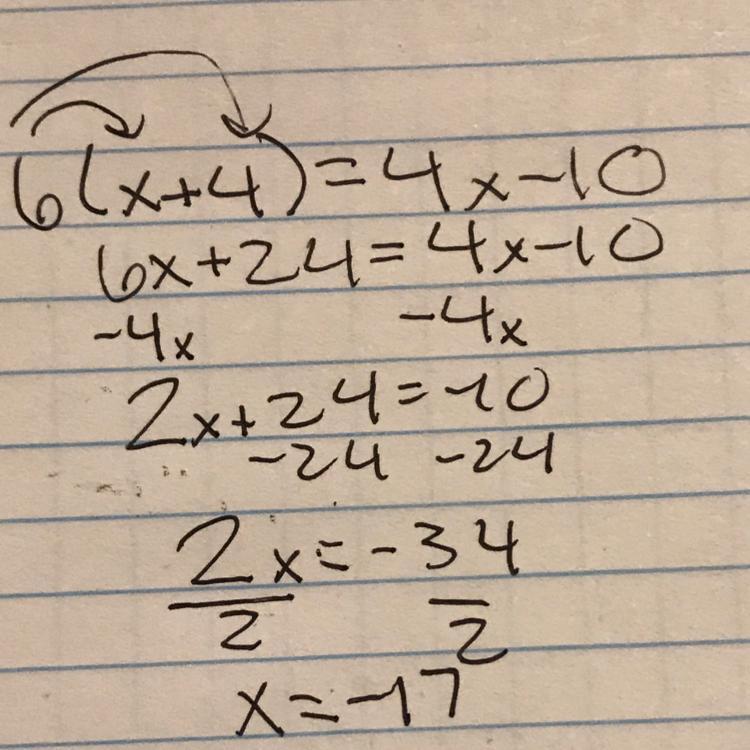 6(x+4)=4x-10
6x+24=4x-10
-4x -4x
2x+24=-10
-24 -24
2x=-34
2 2
x=-17